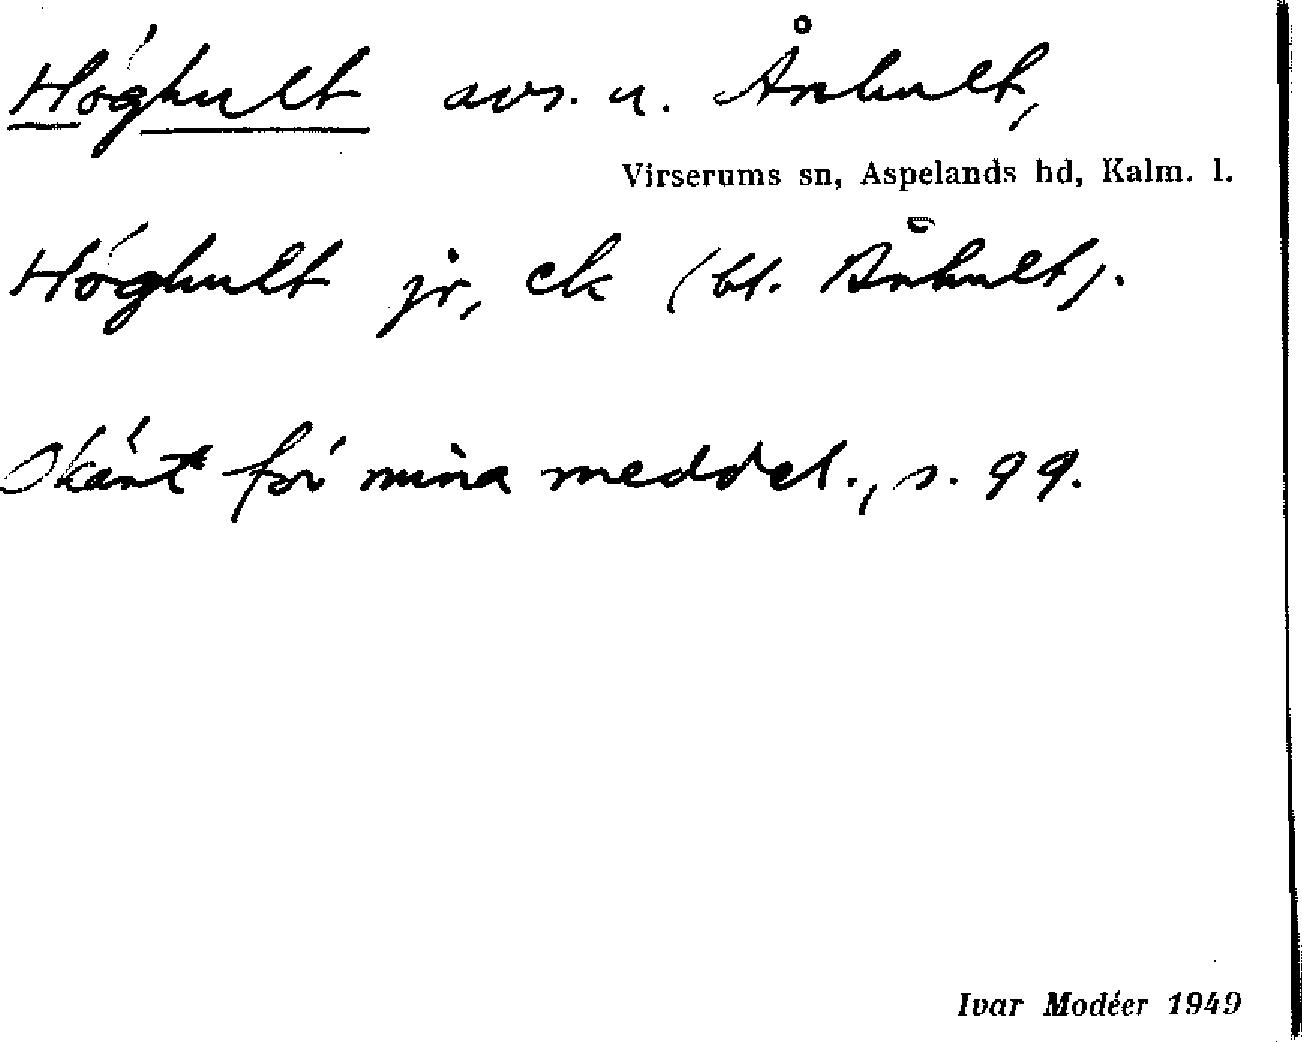 Höghult avs. u. Ånhult,
Virserums sn, Aspelands hd, Kalm. l.
Höghult jr, ek (bl. Ånhult).
Okänt för mina meddel., s. 99.
Ivar Modéer 1949